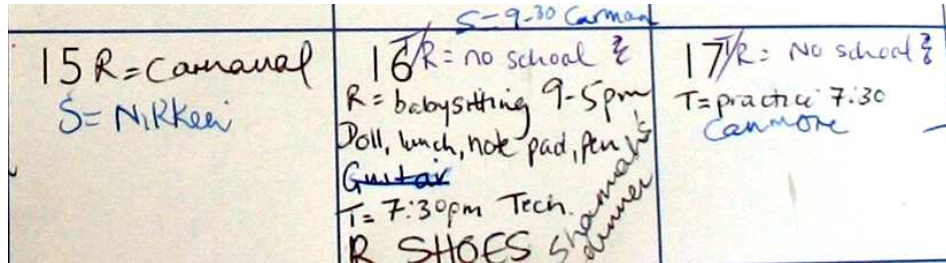 S-9-30 Carman
15 R=Carnaval
S=Nikkei
16 T/R=no school
R=babysitting 9-5pm
Doll, lunch, note pad, pen
Guitar
T=7:30pm Tech.
R SHOES
dinner
17 T/R: No school
T=practice 7:30
Canmore